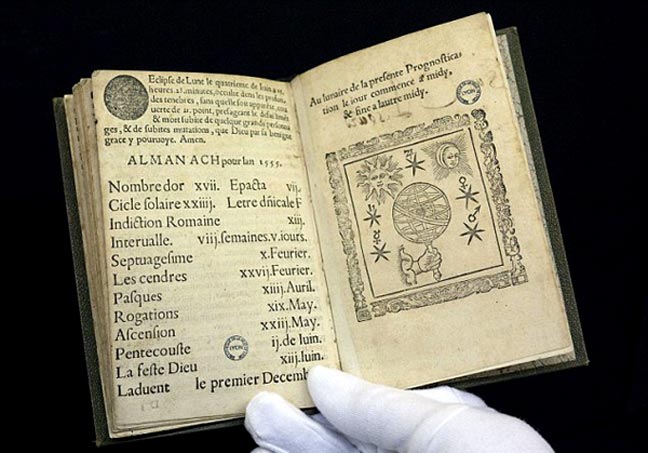 Eclipse de Lune le quatrieme de Iuin a 15.
heures. 25. minutes, occulte dens les profun-
des tenebres, sans quelle soit apparẽte,
uerte de 21. point, presageant le desaduenement
& mort subite de quelque grands personna
ges, & de subites mutations, que Dieu par sa benigne
grace y pouruoye. Amen.
ALMANACH pour lan 1555.
Nombre dor xvii. Epacta vij.
Cicle solaire xxiiij. Letre dñicale F
Indiction Romaine xiij.
Interualle. viij. semaines. v. iours.
Septuagesime x. Feurier.
Les cendres xxvij. Feurier.
Pasques xiiij. Auril.
Rogations xix. May.
Ascension xxiij. May.
Pentecouste ij. de Iuin.
La feste Dieu xiij. Iuin.
Laduent le premier Decemb
LYON
D
Au lunaire de la presente Prognostica-
tion le iour commence a midy,
& fine a lautre midy.
LYON